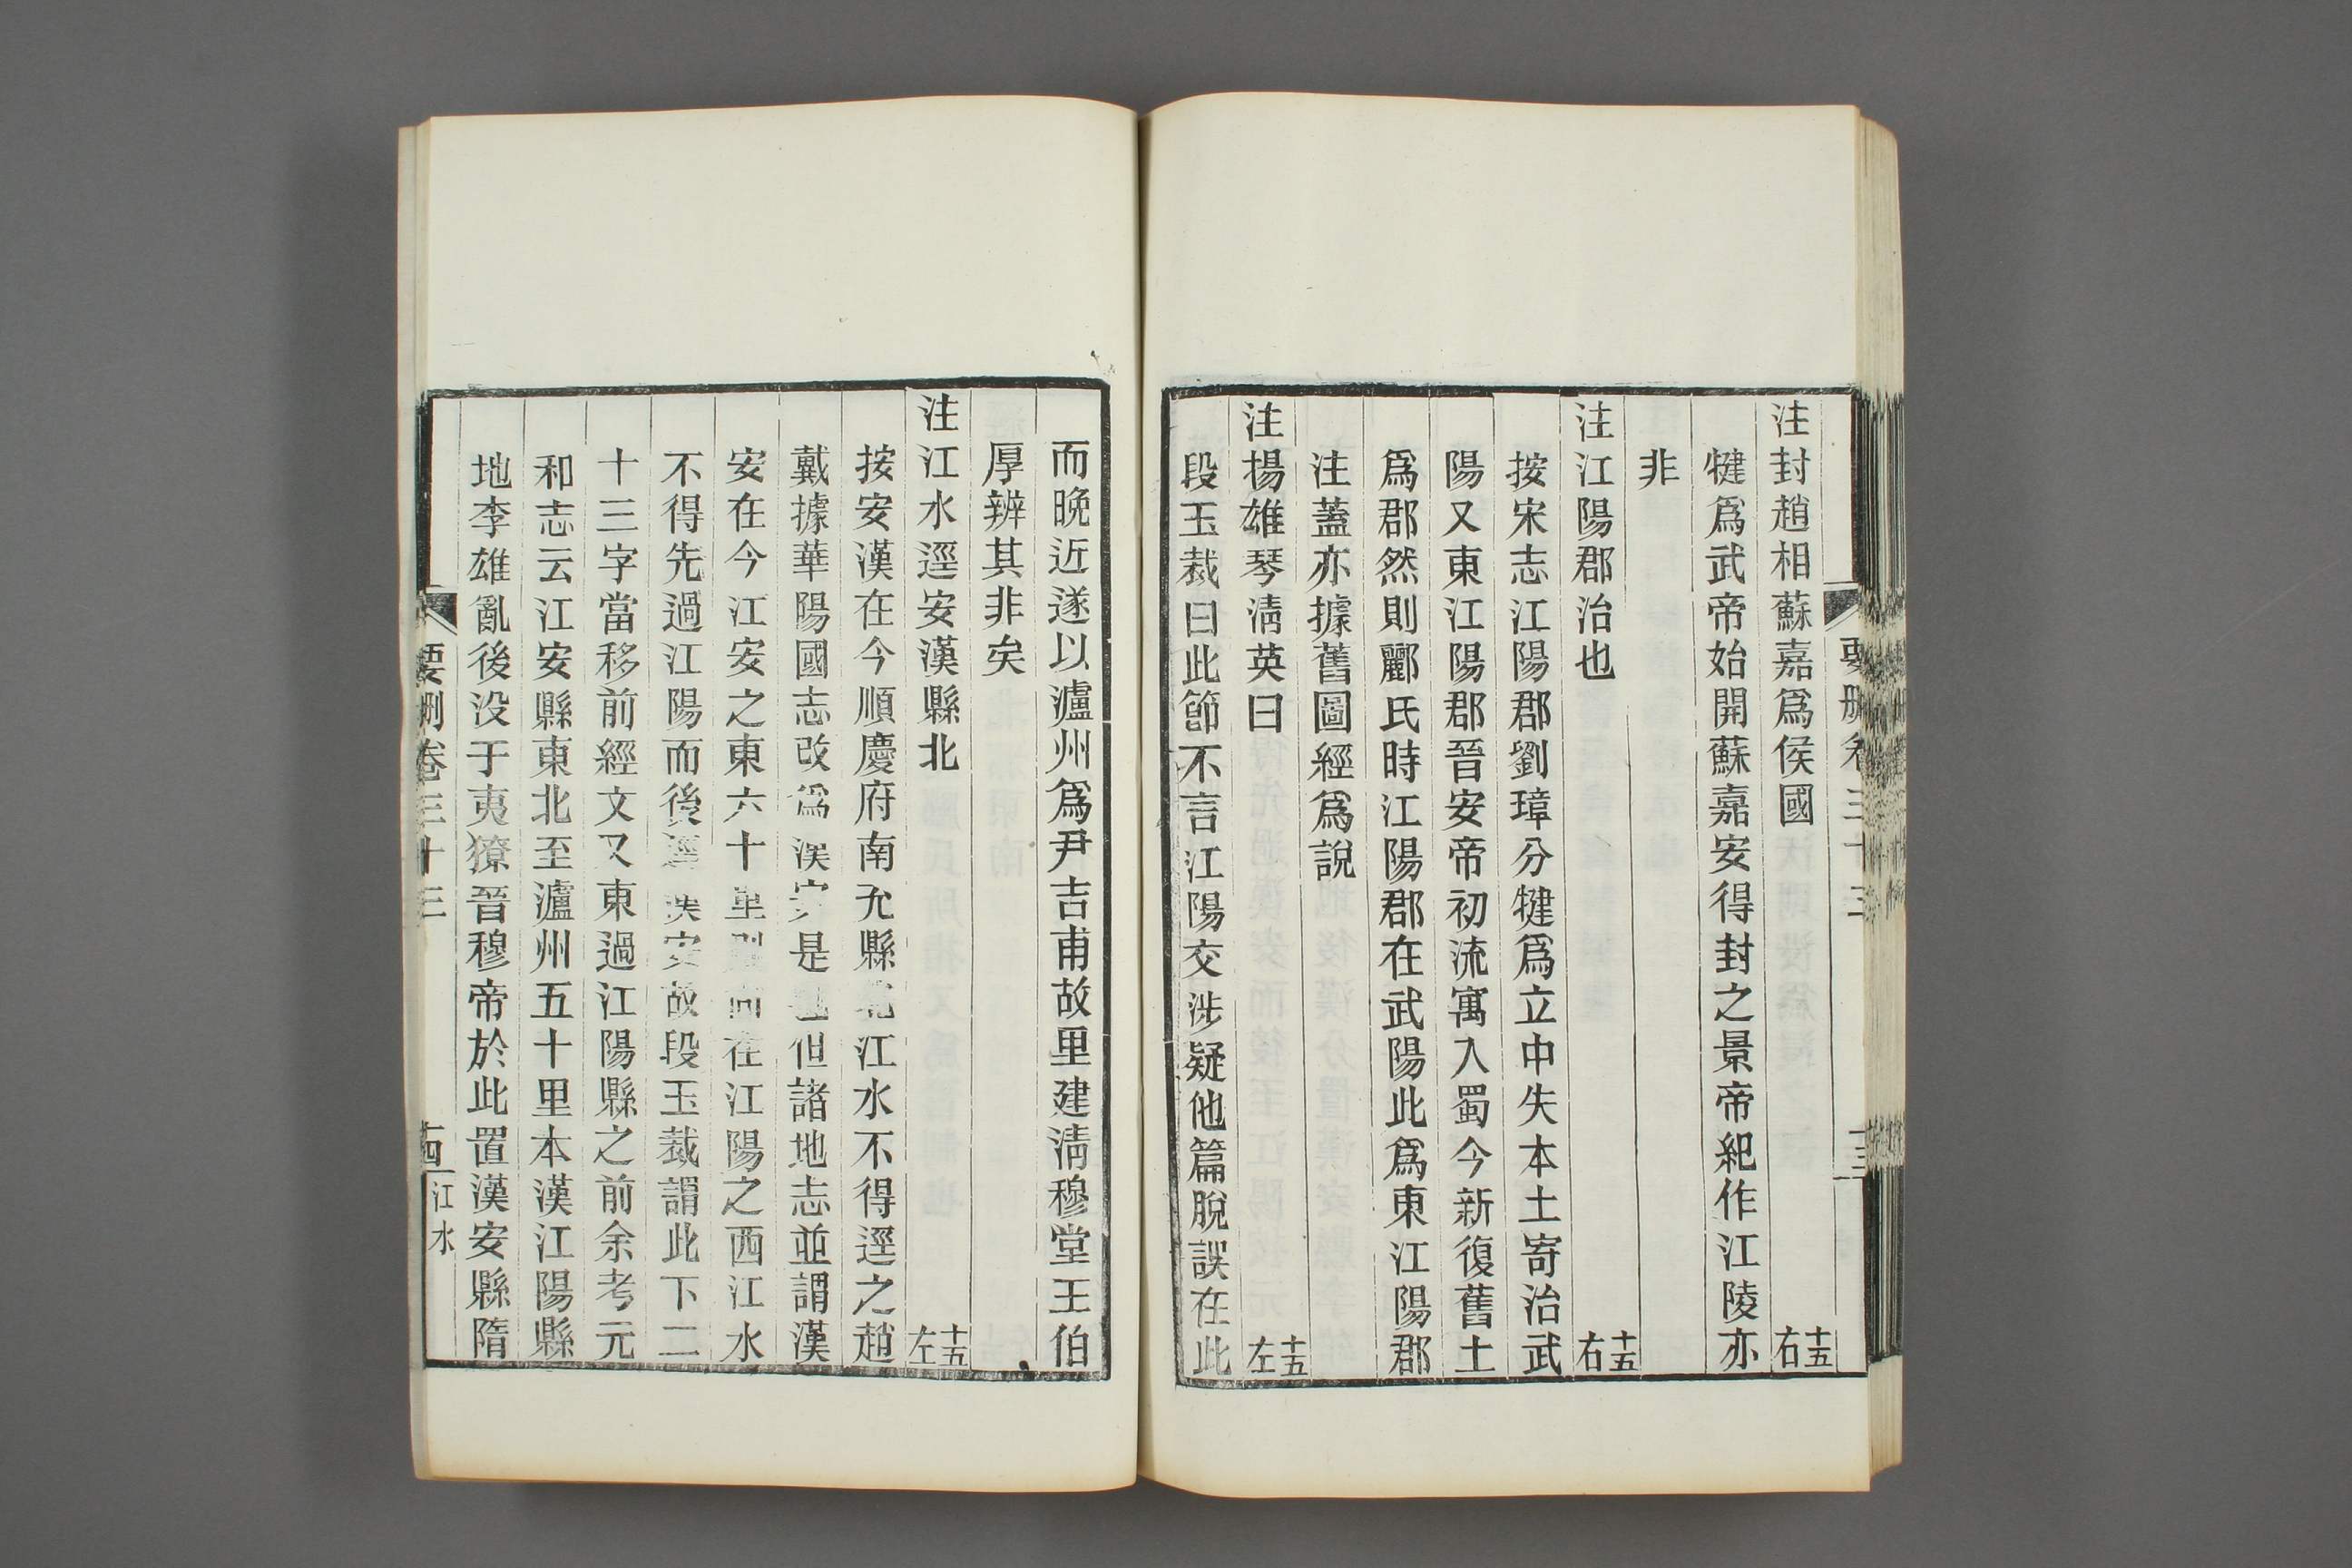 注封趙相蘇嘉爲侯國 十五右
犍爲武帝始開蘇嘉安得封之景帝紀作江陵亦
非
注江陽郡治也 十五右
按宋志江陽郡劉璋分犍爲立中失本土寄治武
陽又東江陽郡晉安帝初流寓入蜀今新復舊土
爲郡然則酈氏時江陽郡在武陽此爲東江陽郡
注蓋亦據舊圖經爲說
注揚雄琴淸英曰 十五左
段玉裁曰此節不言江陽交涉疑他篇脫誤在此
而晚近遂以瀘州爲尹吉甫故里建淸穆堂王伯
厚辨其非矣
注江水逕安漢縣北 十五左
按安漢在今順慶府南充縣北江水不得逕之趙
戴據華陽國志改爲漢安是也但諸地志並謂漢
安在今江安之東六十里則尚在江陽之西江水
不得先過江陽而後逕漢安故段玉裁謂此下二
十三字當移前經文又東過江陽縣之前余考元
和志云江安縣東北至瀘州五十里本漢江陽縣
地李雄亂後没于夷獠晉穆帝於此置漢安縣隋
要刪卷三十三 十四 江水